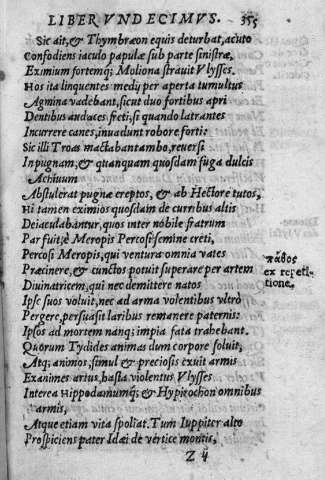 LIBER VNDECIMVS. 355
Sic ait, & Thymbræon equis deturbat, acuto
Confodiens iaculo papulæ sub parte sinistræ,
Eximium fortemq; Moliona strauit Vlysses.
Hos ita linquentes medij per aperta tumultus
Agmina vadebant, sicut duo fortibus apri
Dentibus audaces freti, si quando latrantes
Incurrere canes, inuadunt robore forti:
Sic illi Troas mactabant ambo, reuersi
In pugnam, & quanquam quosdam fuga dulcis
Achiuum
Abstulerat pugnæ ereptos, & ab Hectore tutos,
Hi tamen eximios quosdam de curribus altis
Deiaculabantur, quos inter nobile fratrum
Par fuit, è Meropis Percosi semine creti,
Percosi Meropis, qui ventura omnia vates
πάθος
Præcinere, & cunctos potuit superare per artem
ex repeti-
Diuinatricem, qui nec demittere natos
tione.
Ipse suos voluit, nec ad arma volentibus vltrò
Pergere, persuasit laribus remanere paternis:
Ipsos ad mortem nanq; impia fata trahebant.
Quorum Tydides animas dum corpore soluit,
Atq; animos, simul & preciosis exuit armis
Exanimes artus, hasta violentus Vlysses
Interea Hippodamumq; & Hypirochon omnibus
armis,
Atque etiam vita spoliat. Tum Iuppiter alto
Prospiciens pater Idæi de vertice montis,
Z ij